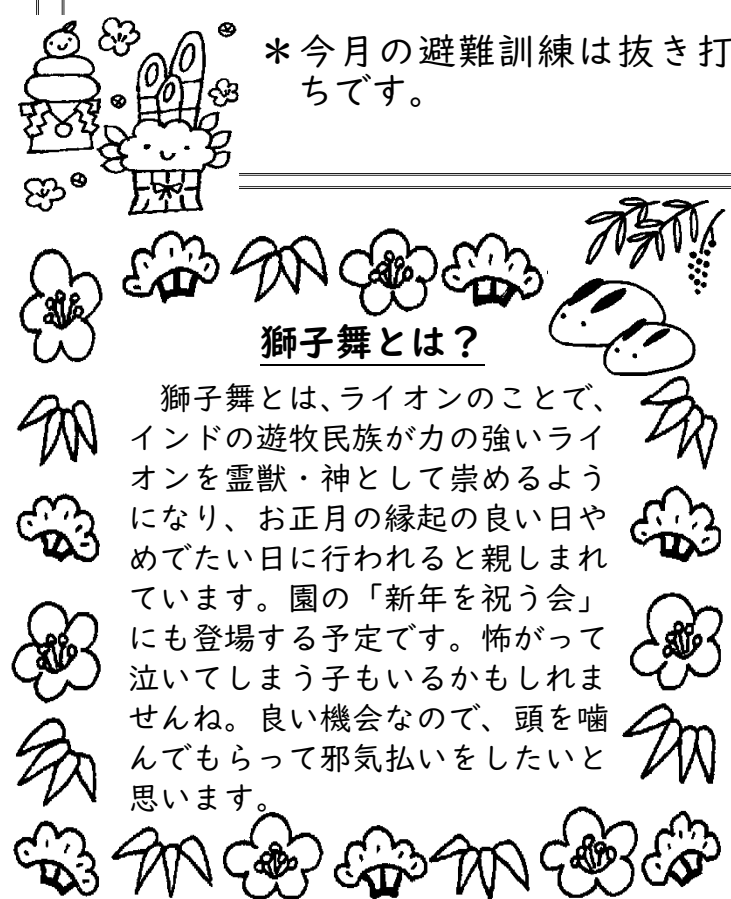 ＊今月の避難訓練は抜き打
ちです。
獅子舞とは？
獅子舞とは、ライオンのことで、
インドの遊牧民族が力の強いライ
オンを霊獣・神として崇めるよう
になり、お正月の縁起の良い日や
めでたい日に行われると親しまれ
ています。園の「新年を祝う会」
にも登場する予定です。怖がって
泣いてしまう子もいるかもしれま
せんね。良い機会なので、頭を噛
んでもらって邪気払いをしたいと
思います。